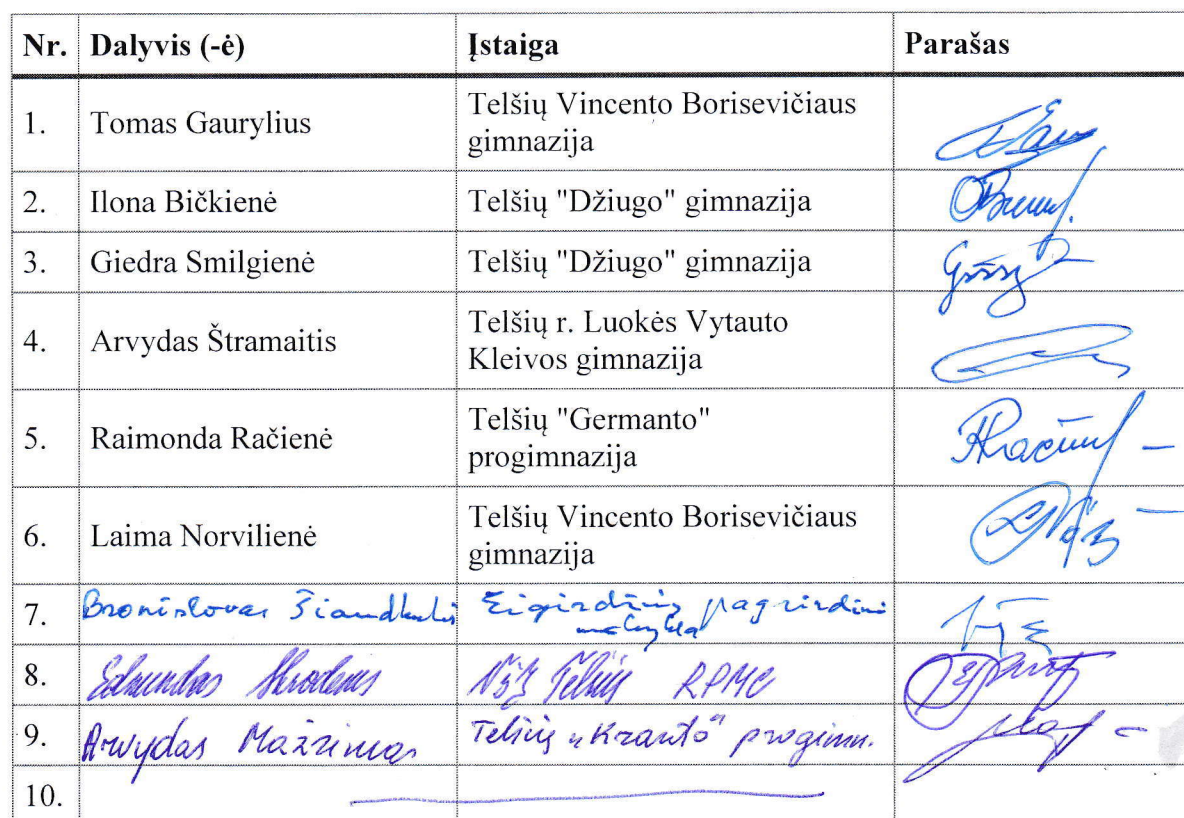 Nr. Dalyvis (-ė) Įstaiga Parašas
1. Tomas Gaurylius Telšių Vincento Borisevičiaus
gimnazija
2. Ilona Bičkienė Telšių "Džiugo" gimnazija
3. Giedra Smilgienė Telšių "Džiugo" gimnazija
4. Arvydas Štramaitis Telšių r. Luokės Vytauto
Kleivos gimnazija
5. Raimonda Račienė Telšių "Germanto"
progimnazija
6. Laima Norvilienė Telšių Vincento Borisevičiaus
gimnazija
7. Bronislovas Eigirdžių pagrindinė
mokykla
8. Edmundas Telšių RPMC
9. Arvydas Mažrimas Telšių „Kranto" progimn.
10.